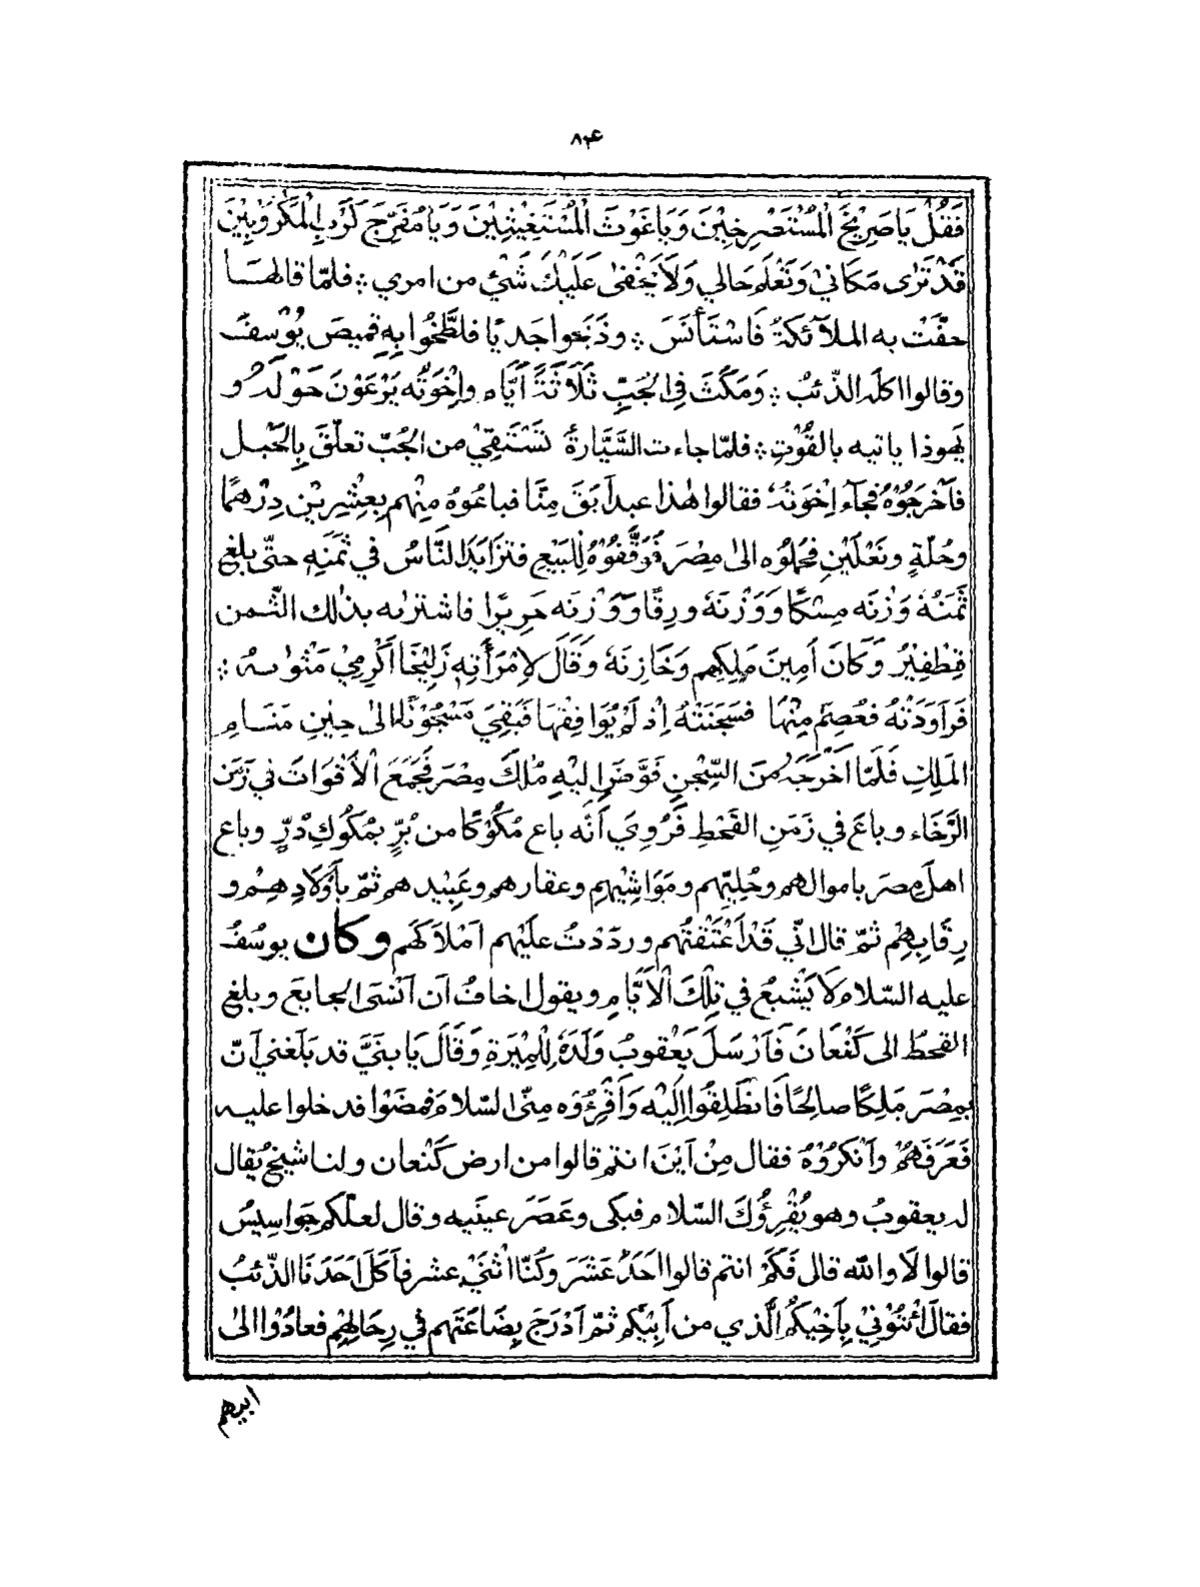 ۸۴
فَقُلْ يَا صَرِيْخَ الْمُسْتَصْرِخِيْنَ وَيَا غَوْثَ الْمُسْتَغِيْثِيْنَ وَيَا مُفَرِّجَ كَرْبِ الْمَكْرُوْبِيْنَ
قَدْ تَرٰى مَكَانِيْ وَتَعْلَمُ حَالِي وَلَا يَخْفٰى عَلَيْكَ شَيْءٌ من امري ؞ فلمّا قالها
حفّتْ به الملآئكةُ فَاسْتَأْنَسَ ؞ وذَبَحُوا جَديًا فلطَّخُوا بِهِ قميصَ يُوْسفَ
وقالوا اكله الذّئبُ ؞ وَمَكَثَ فِي الجُبِّ ثَلَاثَةَ أَيَّام واِخْوَتُه يَرْعَوْنَ حَوْلَهُ و
يَهوذا ياتيه بالقُوْتِ ؞ فلمّا جاءت السَّيَّارةُ تَسْتَقِيْ من الجُبّ تعلّقَ بِالحَبْل
فاَخْرَجُوْهُ فجآء اِخْوَتُهُ فقالوا هٰذا عبد اَبَقَ مِنَّا فباعُوهُ مِنْهم بِعِشْرِيْن دِرْهمًا
وحُلّةٍ ونَعْلَيْنِ فحملوُه الىٰ مِصْرَ فَوَقَّفُوْهُ لِلبَيْعِ فتزَايَدَ النَّاسُ في ثَمَنِهِ حتّى بلغ
ثَمَنُهُ وَزْنَه مِسْكًا وَوَزْنَهُ ورِقًا وَوَزْنَه حَرِيرًا فاشترٰىه بذٰلك الثّمن
قِطْفِيْرُ وَكَانَ اَمِينَ مَلِكِهِم وَخَازِنَهُ وَقَالَ لِاِمْرَأَتِهِ زَلِيْخَا اَكْرِمِيْ مَثْوٰىهُ ؞
فَرَاوَدَتْهُ فعُصِمَ مِنْهَا فسَجَنَتْهُ اِذ لَمْ يُوَافِقْهَا فَبَقِيَ مَسْجُوْنًا الىٰ حِيْنِ مَنَامِ
المَلِكِ فَلَمَّا اَخْرَجَهُ مِنَ السِّجْنِ فَوَّضَ اِلَيْهِ مُلْكَ مِصْرَ فَجَمَعَ الْاَقْوَاتَ في زَمَنِ
الرَّخَاء وباعَ في زَمَنِ القَحْطِ فَرُوِيَ اَنّه باع مُكُوْكًا من بُرٍّ بمَكُوكِ دُرٍّ وباع
اهلَ مِصرَ باموالهم وحُلِيّهم ومَوَاشِيْهِم وعقارهم وعَبِيْدهم ثمّ بِاَوْلَادِهِمْ و
رِقَابِهِمْ ثمّ قال انّي قَدْ اَعْتَقْتُهم وردَدْتُ علَيْهم اَمْلاَكَهُم وكان يوسُفُ
عليه السّلام لَا يَشْبَعُ في تِلْكَ الْاَيَّام ويقول اخافُ اَن اَنْسَى الجايعَ وبلغ
القحطُ الى كَنْعَانَ فَاَرْسَلَ يَعْقوبُ وَلَدَهُ لِلْمِيْرَةِ وَقَالَ يَا بَنِيَّ قد بَلَغني اَنّ
بمِصْرَ مَلِكًا صالِحًا فَانْطَلِقُوا اِلَيْهِ وَاَقْرِءُوْه مِنّي السّلامَ فمَضَوْا فدخلوا عليه
فَعَرَفَهُمْ واَنْكَرُوْهُ فقال مِنْ اَيْنَ انتم قالوا من ارض كَنْعان ولنا شيخٌ يُقال
له يعقوبُ وهو يُقْرِؤُكَ السّلام فبكى وعَصَرَ عينَيه وقال لعلّكم جَواسِيسُ
قالوا لَا والله قال فَكَمْ انتم قالوا اَحَدَ عَشَرَ وكُنّا اثْنَيْ عشر فاَكَلَ اَحَدَنَا الذّئبُ
فقالَ ائْتُوْنِيْ بِاَخِيْكُمُ الَّذي من اَبِيْكُم ثمّ اَدْرَجَ بِضَاعَتَهم في رِحَالِهِمْ فعادُوْا الىٰ
ابيهم